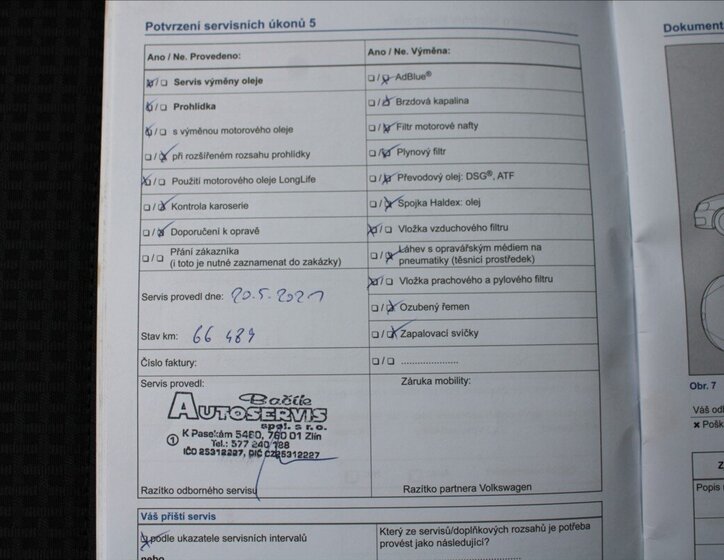 Potvrzení servisních úkonů 5
Ano / Ne. Provedeno:
Servis výměny oleje
Prohlídka
s výměnou motorového oleje
při rozšířeném rozsahu prohlídky
Použití motorového oleje LongLife
Kontrola karoserie
Doporučení k opravě
Přání zákazníka
(i toto je nutné zaznamenat do zakázky)
Servis provedl dne: 20.5.2021
Stav km: 66 489
Číslo faktury:
Servis provedl:
Bačík
AUTOSERVIS
spol. s r.o.
1 K Pasekám 5480, 760 01 Zlín
Tel.: 577 240 188
IČO 25312227, DIČ CZ25312227
Razítko odborného servisu
Ano / Ne. Výměna:
AdBlue®
Brzdová kapalina
Filtr motorové nafty
Plynový filtr
Převodový olej: DSG®, ATF
Spojka Haldex: olej
Vložka vzduchového filtru
Láhev s opravářským médiem na
pneumatiky (těsnicí prostředek)
Vložka prachového a pylového filtru
Ozubený řemen
Zapalovací svíčky
......................
Záruka mobility:
Razítko partnera Volkswagen
Váš příští servis
podle ukazatele servisních intervalů
nebo
Který ze servisů/doplňkových rozsahů je potřeba
provést jako následující?
Dokument
Obr. 7
Váš od
Pošk
Z
Popis